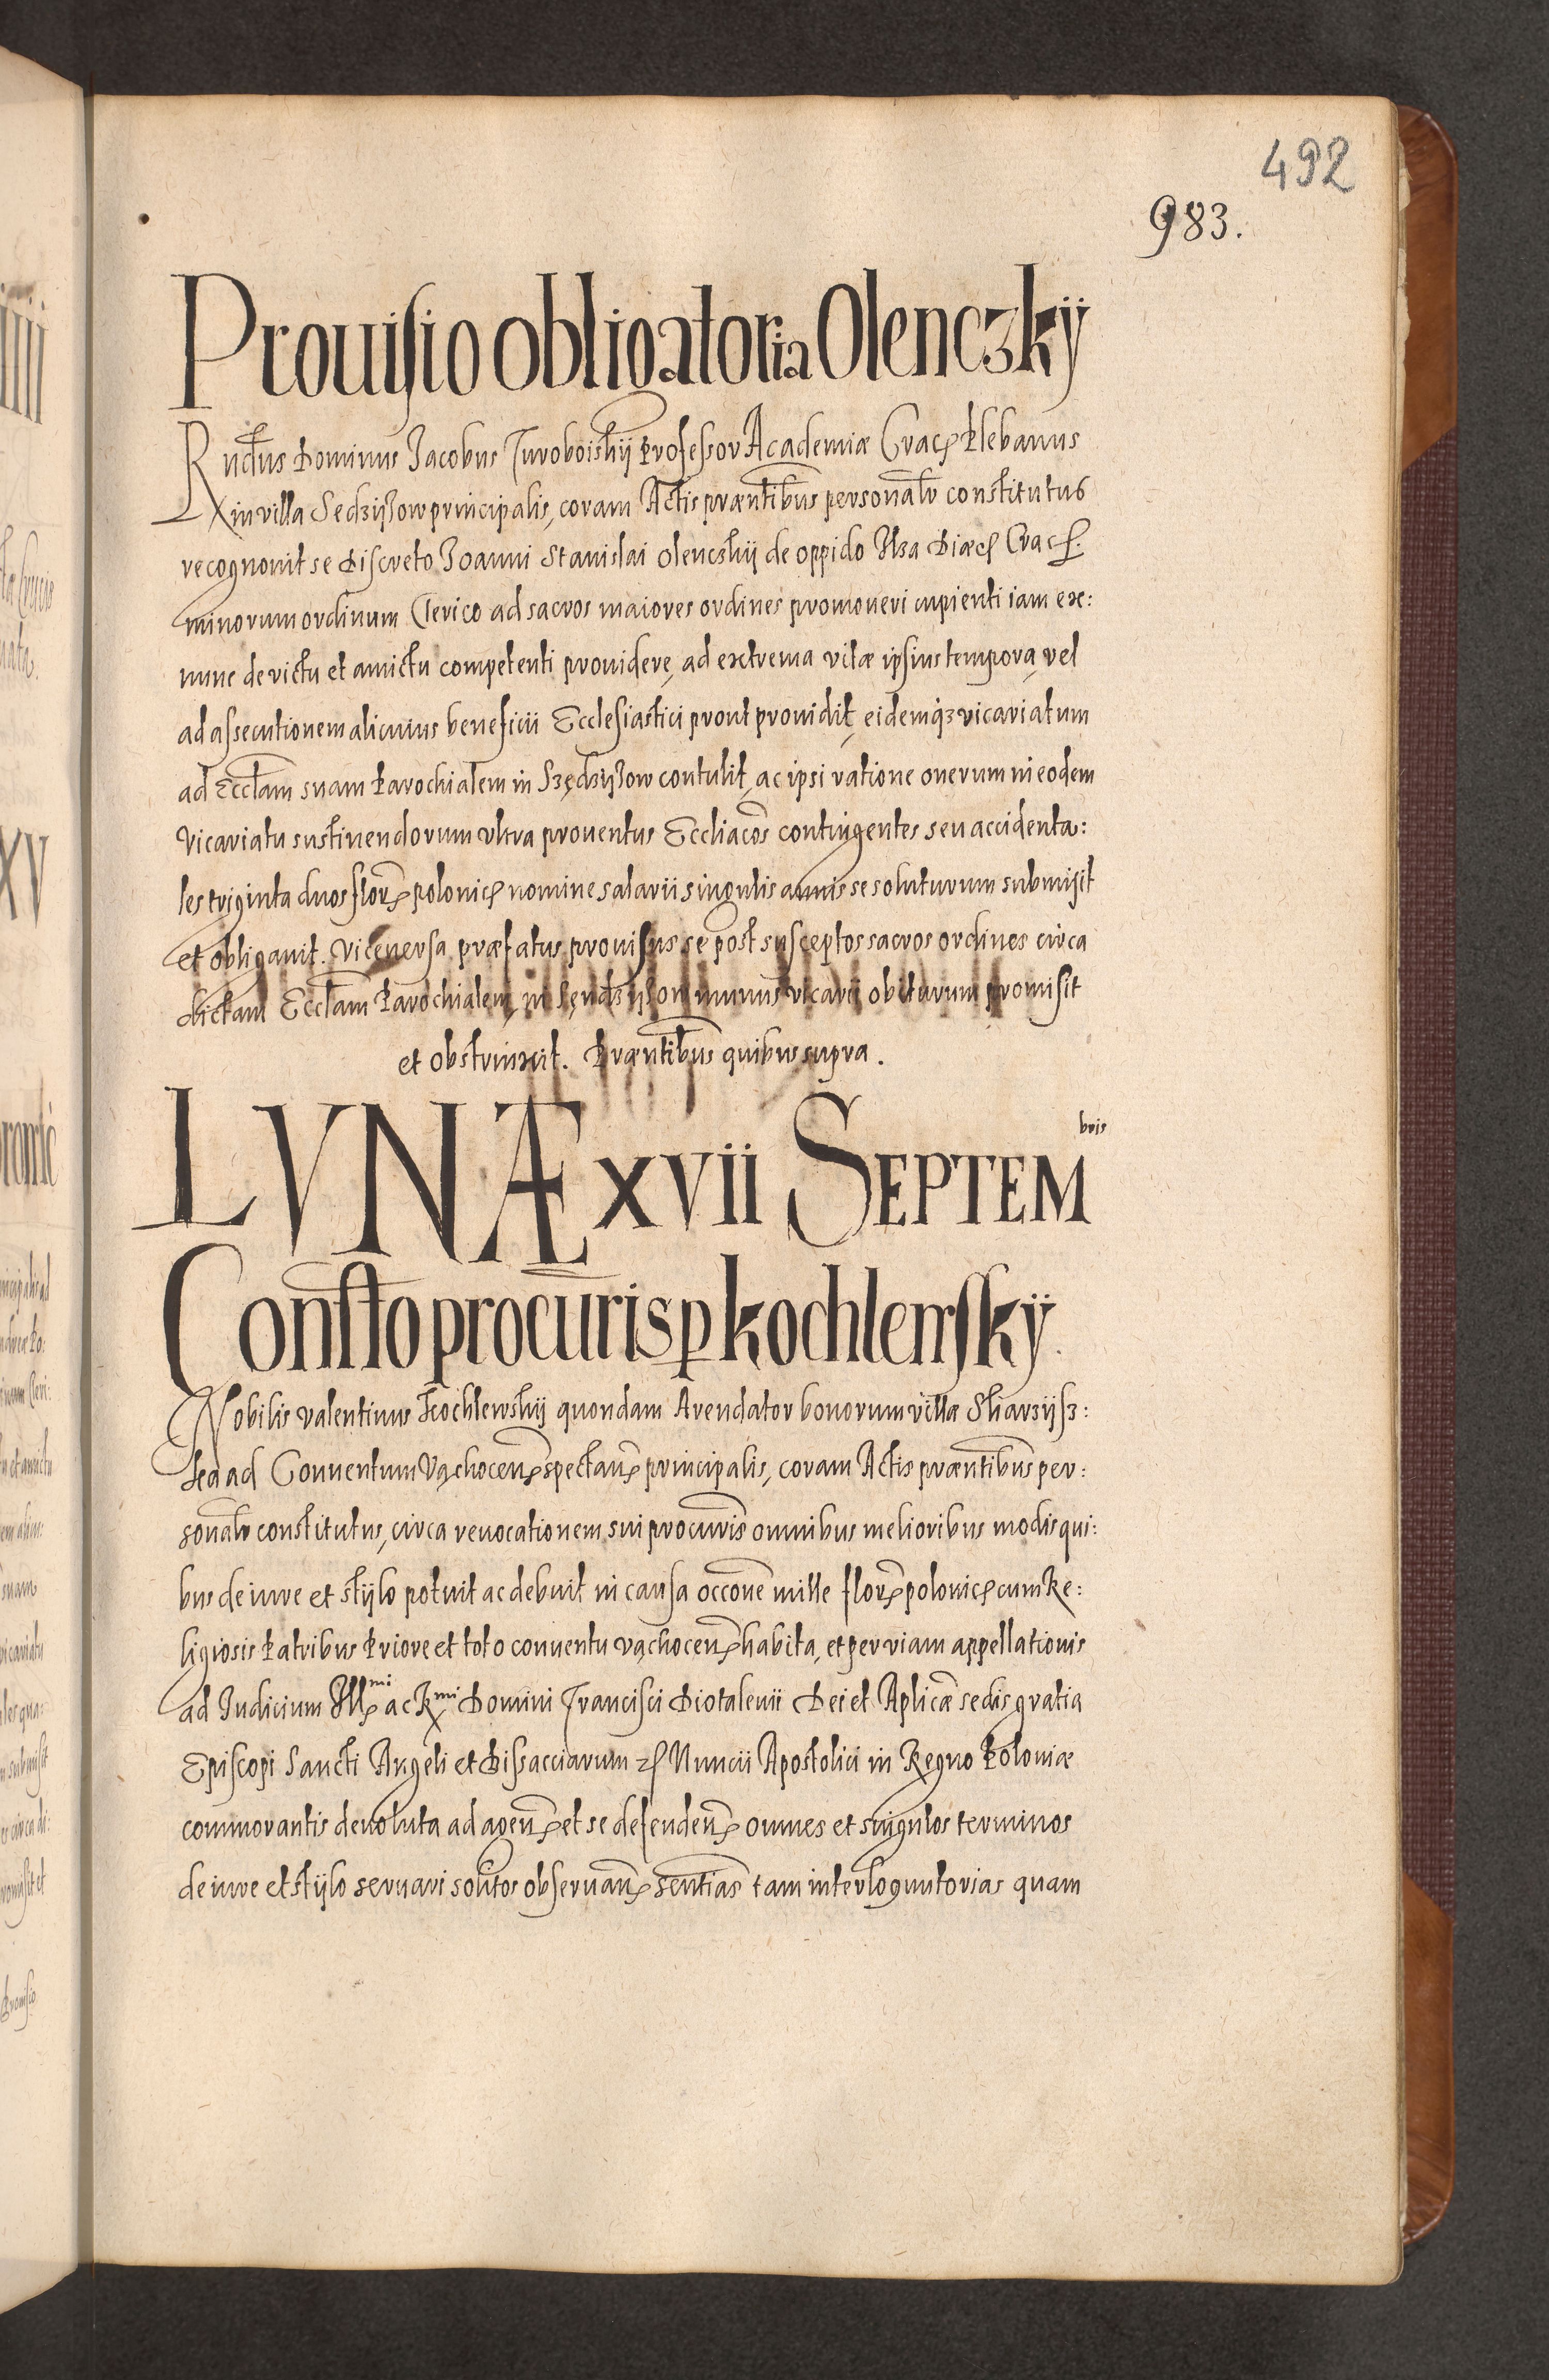 492
983.
Prouisio obligatoria Olenczkÿ
Rndus Dominus Jacobus Turoboiskij Professor Academiæ Crac Plebanus
in villa Sedzijʒow principalis, coram Actis præntibus personalr constitutus
recognouit se discreto Joanni Stanislai Olencskij de oppido Ilza Diæc Crac
minorum ordinum Clerico ad sacros maiores ordines promoueri cupienti iam ex:
nunc de victu et amictu competenti prouidere, ad extrema vitæ ipsius tempora, vel
ad assecutionem alicuius beneficii Ecclesiastici prout prouidit, eidemqʒ vicariatum
ad Ecclam suam Parochialem in Szędzijʒow contulit, ac ipsi ratione onerum in eodem
Vicariatu sustinendorum vltra prouentus Eccliacos contingentes seu accidenta:
les triginta duos flor polonic nomine salarii singulis annis se soluturum submisit
et obligauit. Viceuersa præfatus prouisus se post susceptos sacros ordines circa
dictam Ecclam Parochialem, in Sędzijʒow munus vicarii obiturum promisit
et obstrinxit. Præntibus quibus supra.
LVNÆ XVII SEPTEM bris
Constto procuris p kochlewskÿ.
Nobilis Valentinus Kochlewskij quondam Arendator bonorum villæ Skarzijsz:
ka ad Conuentum Vąchocen spectan principalis, coram Actis præntibus per:
sonalr constitutus, circa reuocationem sui procuris omnibus melioribus modis qui:
bus de iure et stijlo potuit ac debuit in causa occone mille flor polonic cum Re:
ligiosis Patribus Priore et toto conuentu vąchocen habita, et per viam appellationis
ad Iudicium Illmi ac Rmi Domini Francisci Diotaleuii Dei et Aplicæ sedis gratia
Episcopi Sancti Angeli et Bissacciarum etc Nuncii Apostolici in Regno Poloniæ
commorantis deuoluta ad agen et se defenden omnes et singulos terminos
de iure et stijlo seruari solitos obseruan sentias tam interloquutorias quam